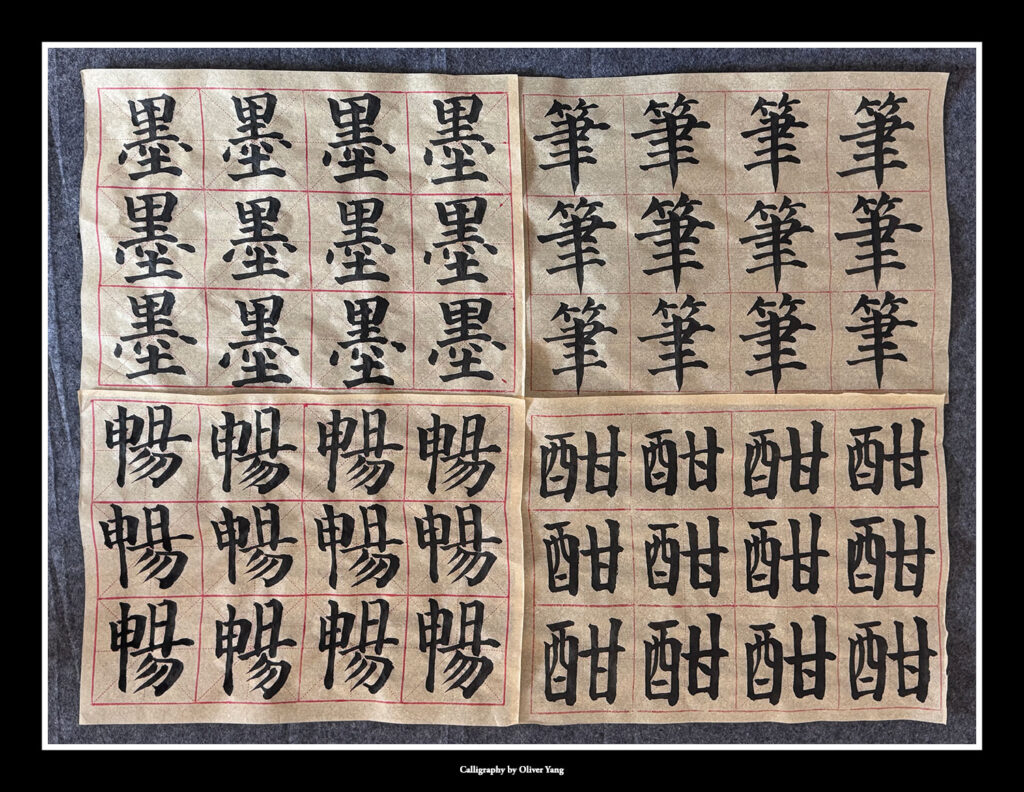 墨墨墨墨
墨墨墨墨
墨墨墨墨
筆筆筆筆
筆筆筆筆
筆筆筆筆
暢暢暢暢
暢暢暢暢
暢暢暢暢
酣酣酣酣
酣酣酣酣
酣酣酣酣
Calligraphy by Oliver Yang